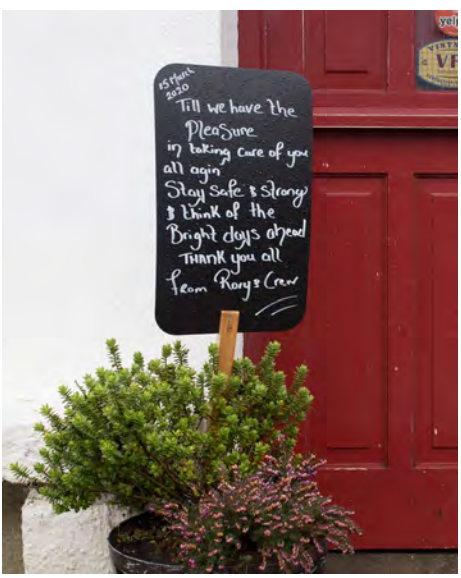 15 March
2020
Till we have the
Pleasure
in taking care of you
all agin
Stay Safe & Strong
& think of the
Bright days ahead
THANK you all
from Rory & Crew
yelp
VINTN
VF